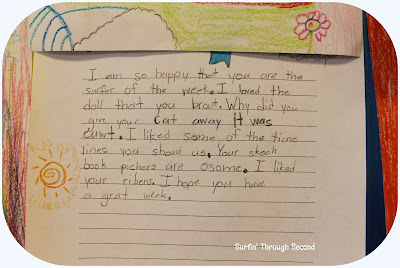 I am so happy that you are the
surfer of the week. I loved the
doll that you brout. Why did you
give your cat away It was
cuwt. I liked some of the time
lines you shoud us. Your skech
book pichers are osome. I liked
your ribens. I hope you have
a grat week.
Surfin' Through Second